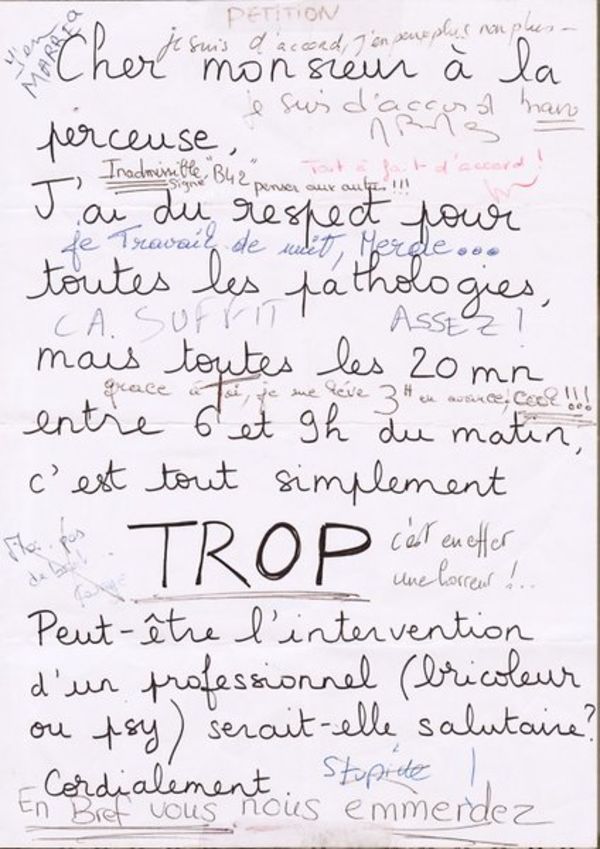 PETITION
J'en
MARRE
je suis d'accord, j'en peux plus non plus -
Cher monsieur à la
je suis d'accord
perceuse,
Inadmissible, "B42"
signé
penser aux autres !!!
Tout à fait d'accord !
J'ai du respect pour
je Travail de nuit, Merde...
toutes les pathologies,
CA SUFFIT
ASSEZ !
mais toutes les 20 mn
grace à Toi, je me lève 3H en avance, cool !!!
entre 6 et 9h du matin,
c'est tout simplement
TROP
c'est en effet
une horreur !..
Moi pas
Peut-être l'intervention
d'un professionnel (bricoleur
ou psy) serait-elle salutaire?
Stupide !
Cordialement
En Bref vous nous emmerdez